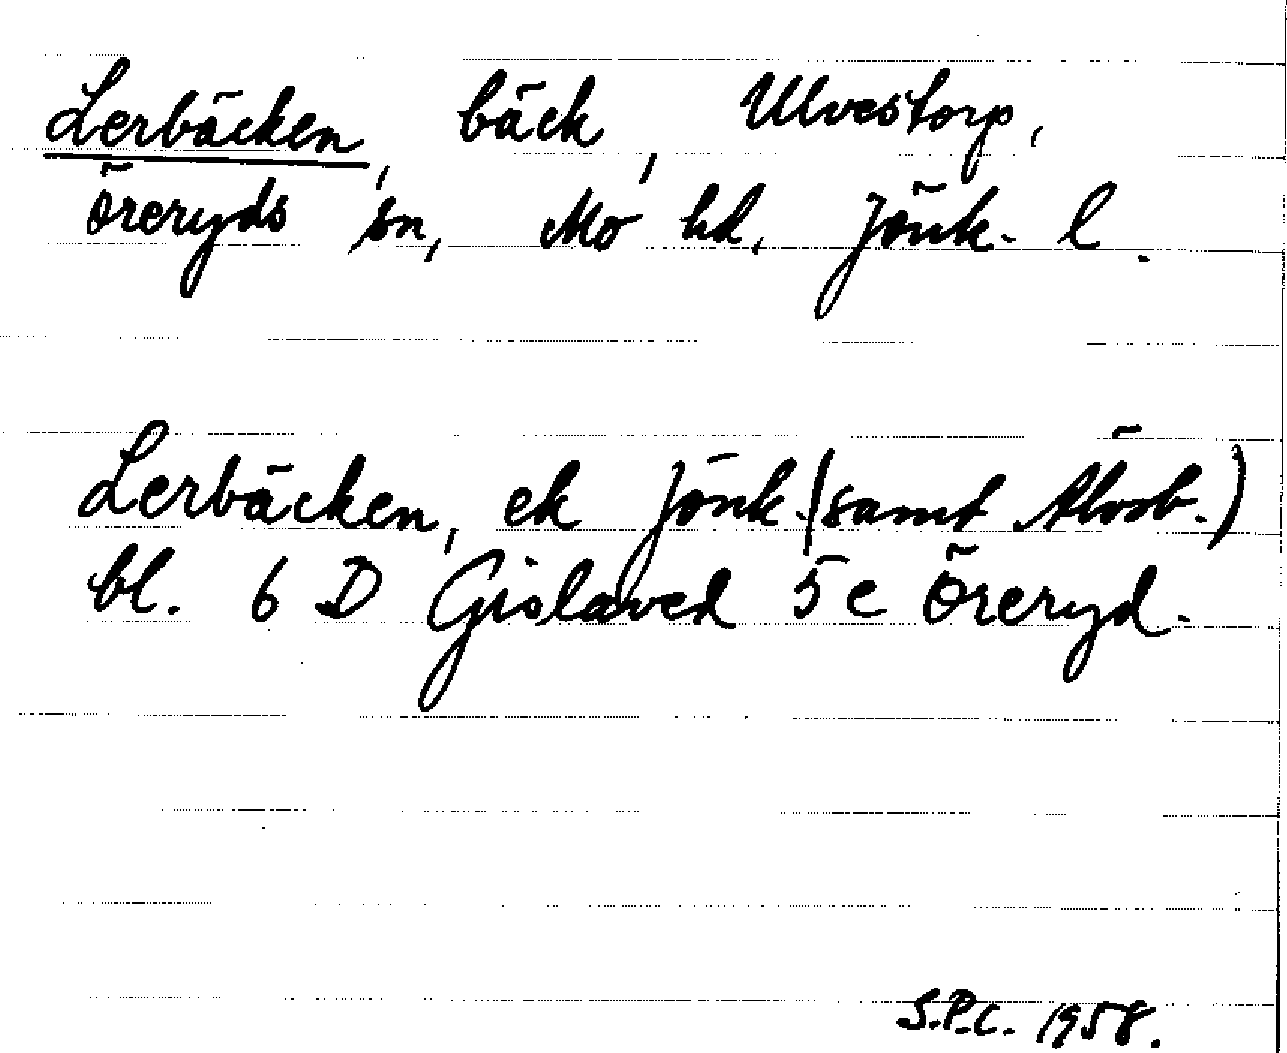 Lerbäcken, bäck, Ulvestorp,
Öreryds sn, Mo hd, Jönk. l.
Lerbäcken, ek Jönk. (samt Älvsb.)
bl. 6 D Gislaved 5 e Öreryd.
S.P.C. 1958.